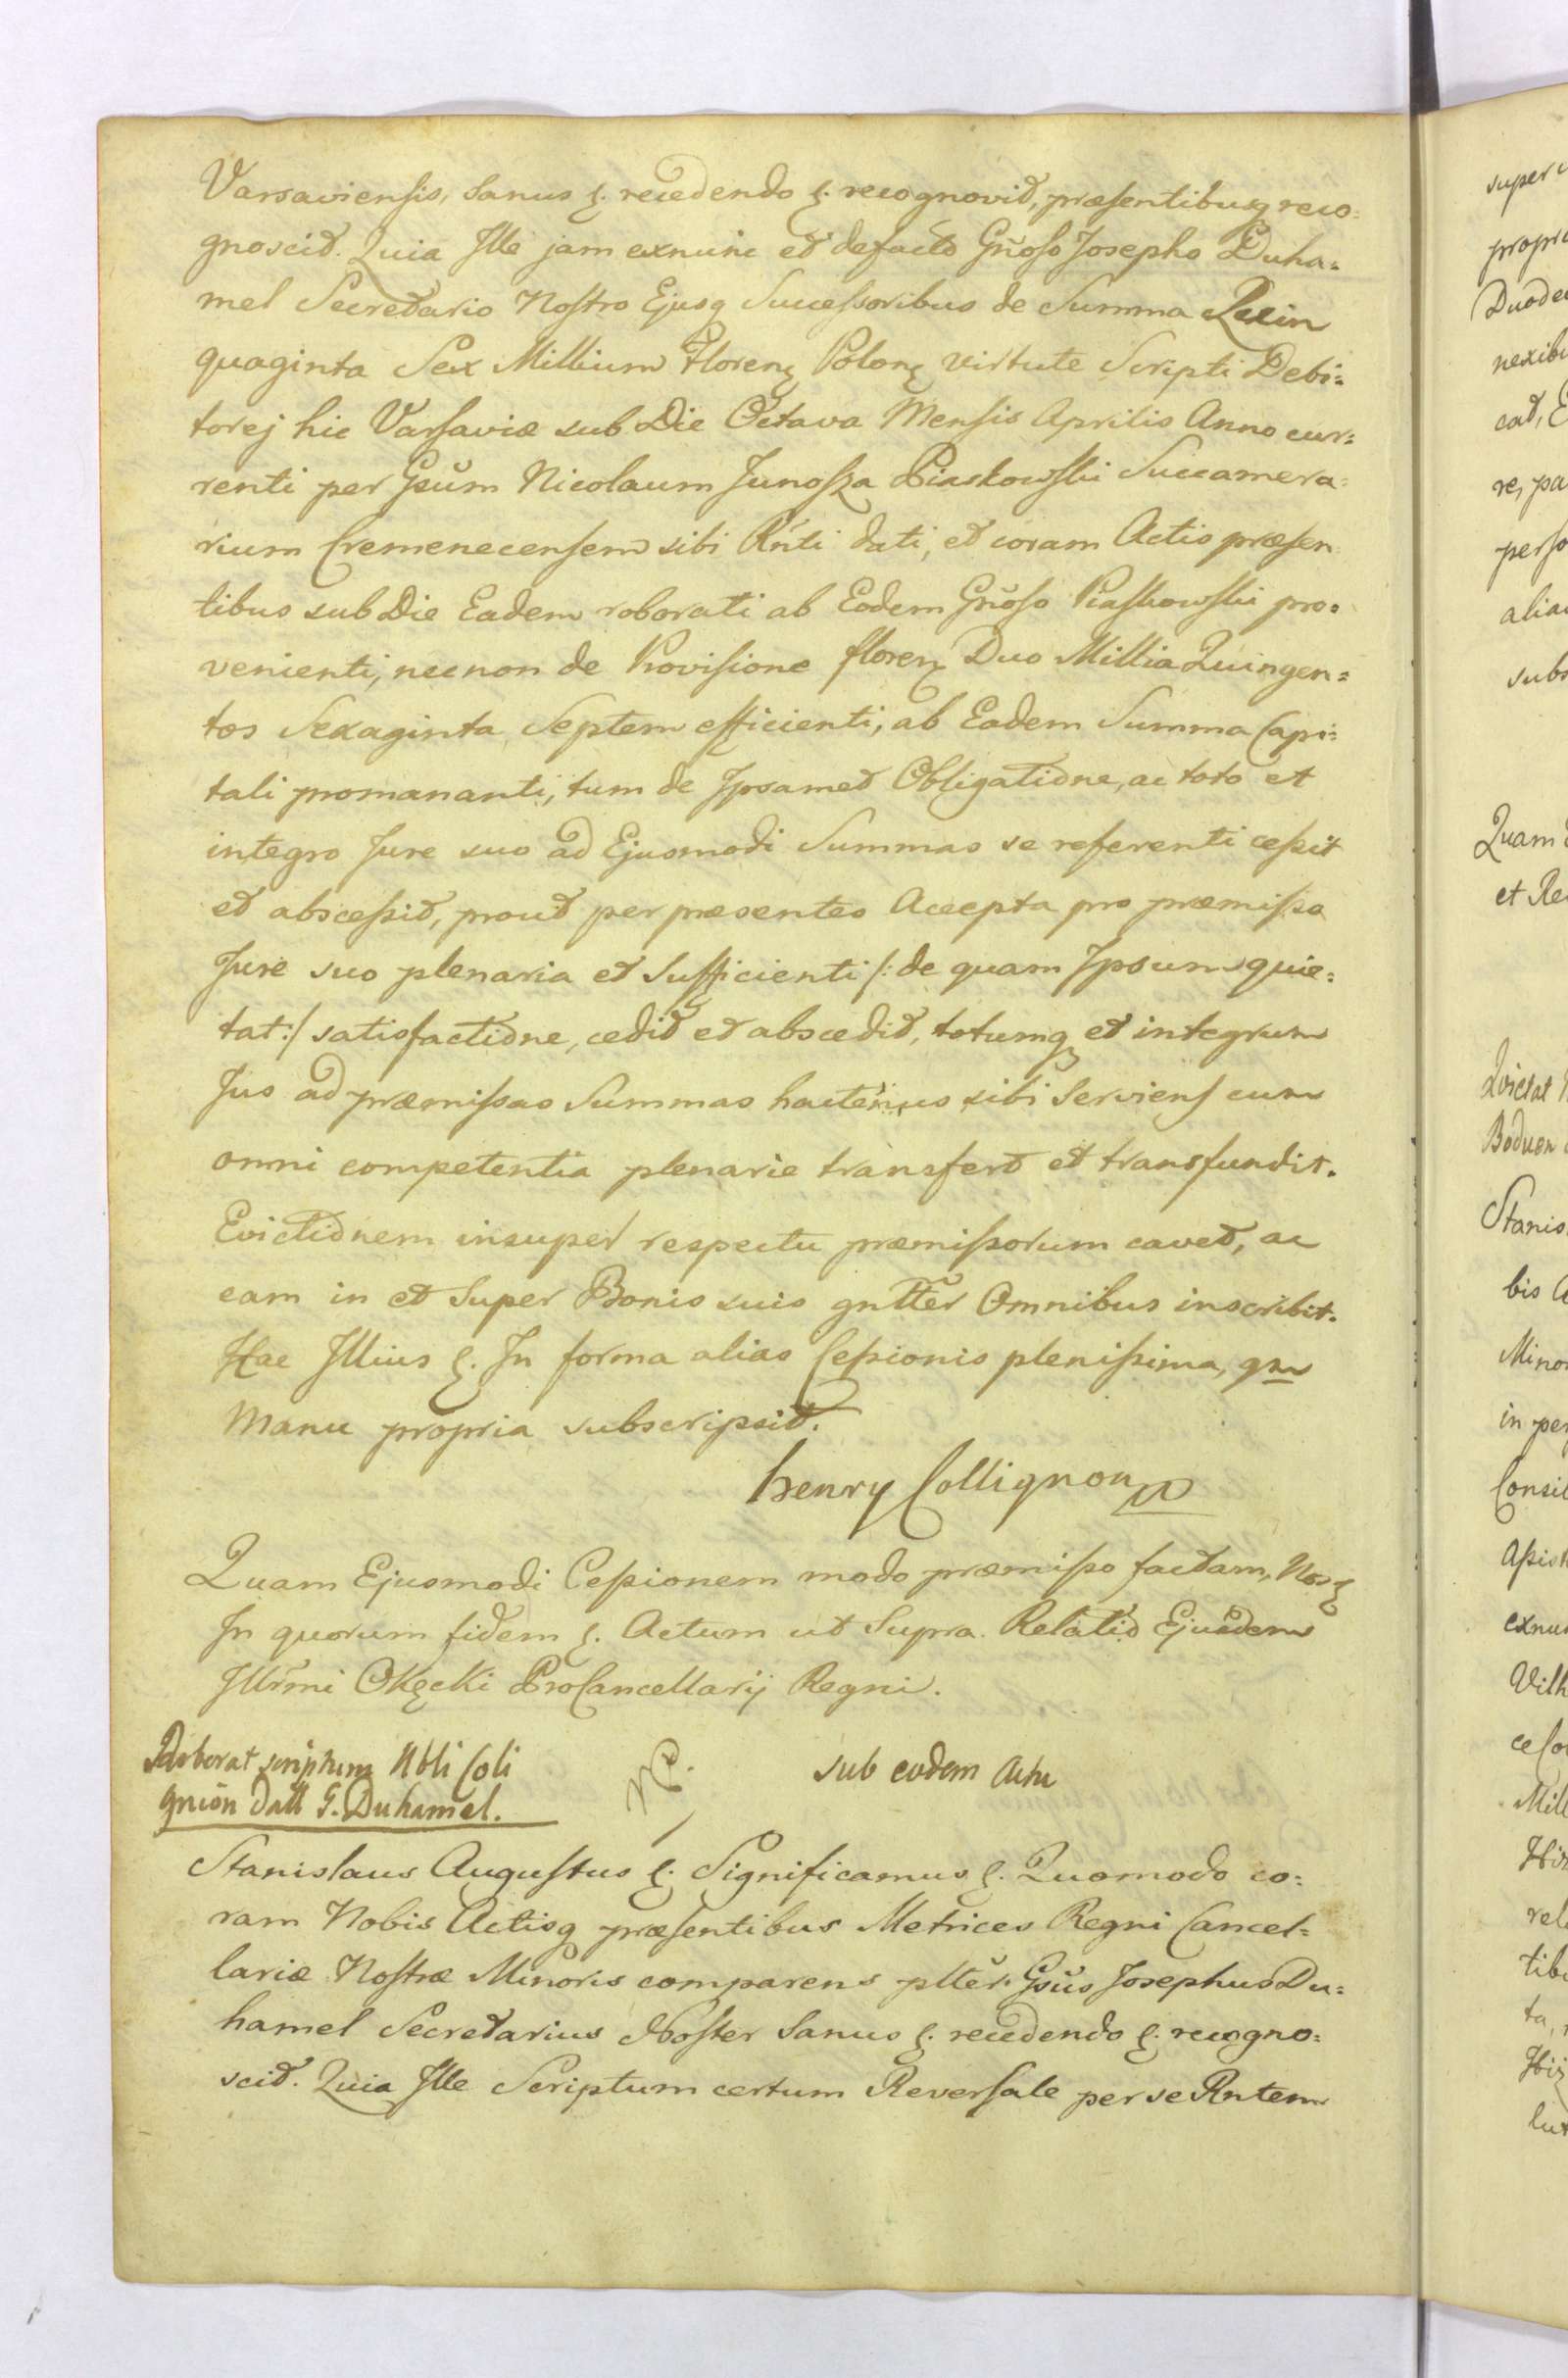 Varsaviensis, Sanus &. recedendo &. recognovit, præsentibusq reco=
gnoscit. Quia Ille jam exnunc et defacto Gñoso Josepho Duha=
mel Secretario Nostro Ejusq Successoribus de Summa Quin
quaginta Sex Millium Florenq Polonq virtute Scripti Debi=
torej hic Varsaviæ sub Die Octava Mensis Aprilis Anno cur=
renti per Gsũm Nicolaum Junosza Piaskowski Succamera=
rium Cremenecensem sibi Rńti dati, et coram Actis præsen
tibus sub Die Eadem roborati ab Eodem Gñoso Piaskowski pro=
venienti, necnon de Provisione florenq Duo Millia Quingen=
tos Sexaginta Septem efficienti, ab Eadem Summa Capi=
tali promananti, tum de Ipsamet Obligatione, ac toto et
integro Jure suo ad Ejusmodi Summas se referenti cessit
et abscessit, prout per præsentes Accepta pro præmisso
Jure suo plenaria et Sufficienti /: de quam Ipsum quie=
tat :/ satisfactione, cedit et abscedit, totumq et integrum
Jus ad præmissas Summas hactenus sibi Serviens cum
omni competentia plenarie transfert et transfundit.
Evictionem insuper respectu præmissorum cavet, ac
eam in et Super Bonis suis gnttěr Omnibus inscribit.
Hac Illius &. In forma alias Cessionis plenissima, qm
Manu propria subscripsit.
henry Collignon
Quam Ejusmodi Cessionem modo præmisso factam, Nosq
In quorum fidem &. Actum ut Supra. Relatio Ejusdem
Illr̃mi Okęcki ProCancellarij Regni.
Roborat scriptum Nbli Coli
gnion datt G. Duhamel.
sub eodem Actu
Stanislaus Augustus &. Significamus &. Quomodo co=
ram Nobis Actisq præsentibus Metrices Regni Cancel=
lariæ Nostræ Minoris comparens pltěr. Gsũs Josephus Du=
hamel Secretarius Noster Sanus &. recedendo &. recogno=
scit. Quia Ille Scriptum certum Reversale per se Rntem
Quam
et Re
Boduen
Stanis
bis
Mino
in per
Consil
exnu
Vilh
Mill
tib
ta,